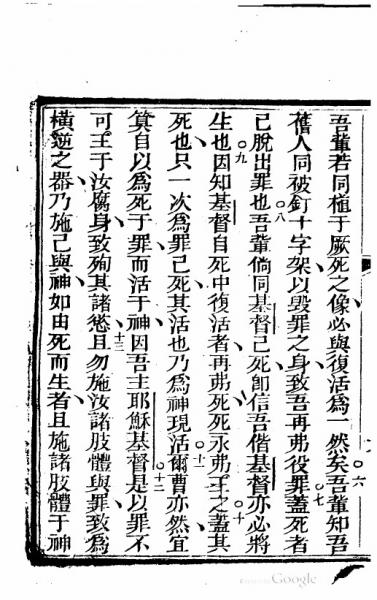 吾輩若同植于厥死之像必與復活爲一然矣吾輩知吾
舊人同被釘十字架以毀罪之身致吾再弗役罪蓋死者
已脫出罪也吾輩倘同基督已死卽信吾偕基督亦必將
生也因知基督自死中復活者再弗死死永弗王之蓋其
死也只一次爲罪已死其活也乃爲神現活爾曹亦然宜
算自以爲死于罪而活于神因吾主耶穌基督是以罪不
可王于汝腐身致殉其諸慾且勿施汝諸肢體與罪致爲
橫逆之器乃施己與神如由死而生者且施諸肢體于神
六
七
八
九
十
十一
十二
十三
Google